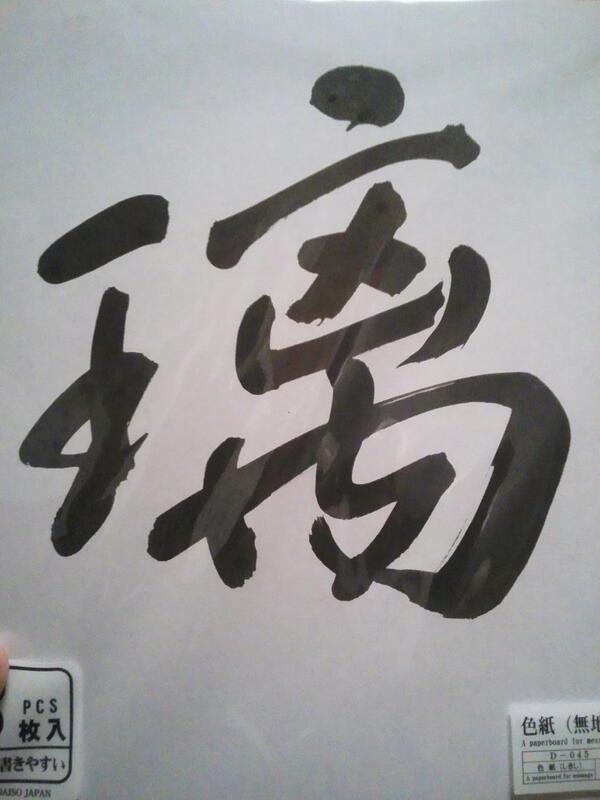 璃
PCS
枚入
書きやすい
DAISO JAPAN
色紙(無地
A paperboard for mess
D-045
色紙(しきし)
A paperboard for message